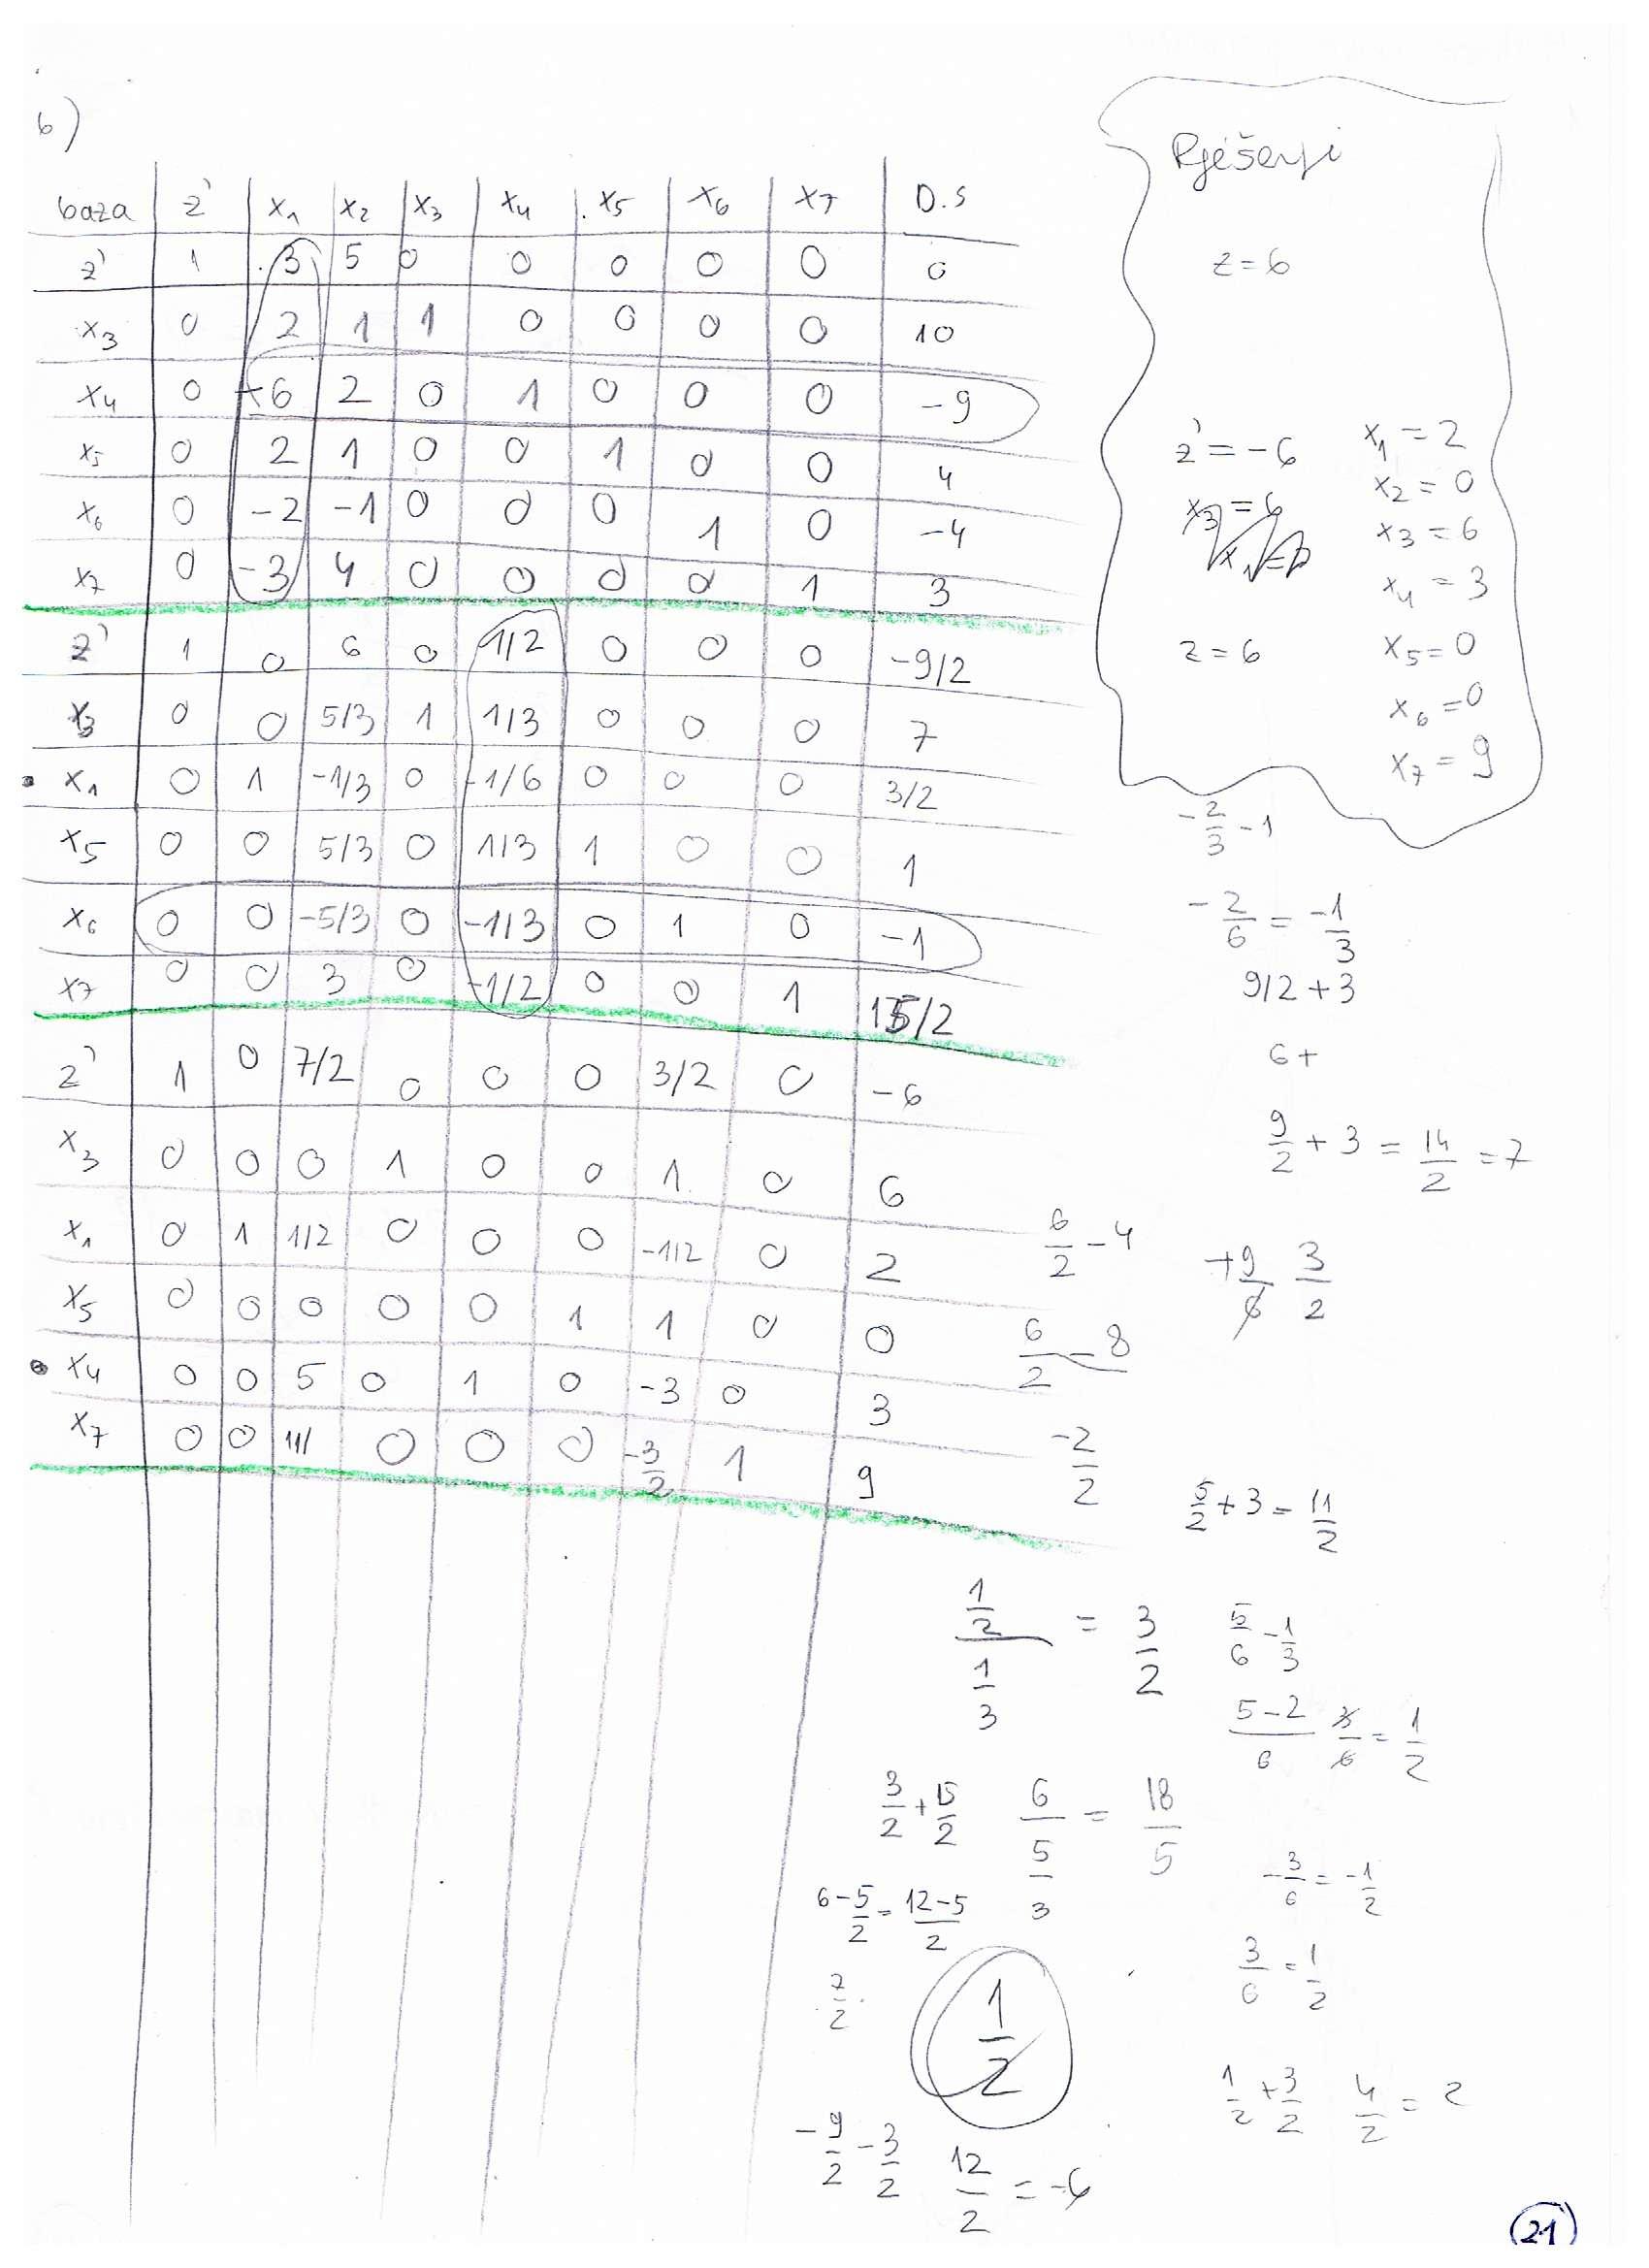 b)
baza z' x₁ x₂ x₃ x₄ x₅ x₆ x₇ D.S
z' 1 3 5 0 0 0 0 0 0
x₃ 0 2 1 1 0 0 0 0 10
x₄ 0 -6 2 0 1 0 0 0 -9
x₅ 0 2 1 0 0 1 0 0 4
x₆ 0 -2 -1 0 0 0 1 0 -4
x₇ 0 -3 4 0 0 0 0 1 3
z' 1 0 6 0 1/2 0 0 0 -9/2
x₃ 0 0 5/3 1 1/3 0 0 0 7
x₁ 0 1 -1/3 0 -1/6 0 0 0 3/2
x₅ 0 0 5/3 0 1/3 1 0 0 1
x₆ 0 0 -5/3 0 -1/3 0 1 0 -1
x₇ 0 0 3 0 -1/2 0 0 1 15/2
z' 1 0 7/2 0 0 0 3/2 0 -6
x₃ 0 0 0 1 0 0 1 0 6
x₁ 0 1 1/2 0 0 0 -1/2 0 2
x₅ 0 0 0 0 0 1 1 0 0
x₄ 0 0 5 0 1 0 -3 0 3
x₇ 0 0 11/ 0 0 0 -3/2 1 9
Rješenji
z = 6
z' = -6 x₁ = 2
x₂ = 0
x₃ = 6 x₃ = 6
x₄ = 3
z = 6 x₅ = 0
x₆ = 0
x₇ = 9
-2/3 - 1
-2/6 = -1/3
9/2 + 3
6 +
9/2 + 3 = 14/2 = 7
6/2 - 4
+9/6 3/2
6/2 - 8
-2/2
5/2 + 3 = 11/2
1/2 / 1/3 = 3/2
5/6 - 1/3
5-2/6 3/6 = 1/2
3/2 + 15/2
6 / 5/3 = 18/5
-3/6 = -1/2
6 - 5/2 = 12-5/2
7/2
1/2
3/6 = 1/2
1/2 + 3/2 4/2 = 2
-9/2 - 3/2 12/2 = -6
21